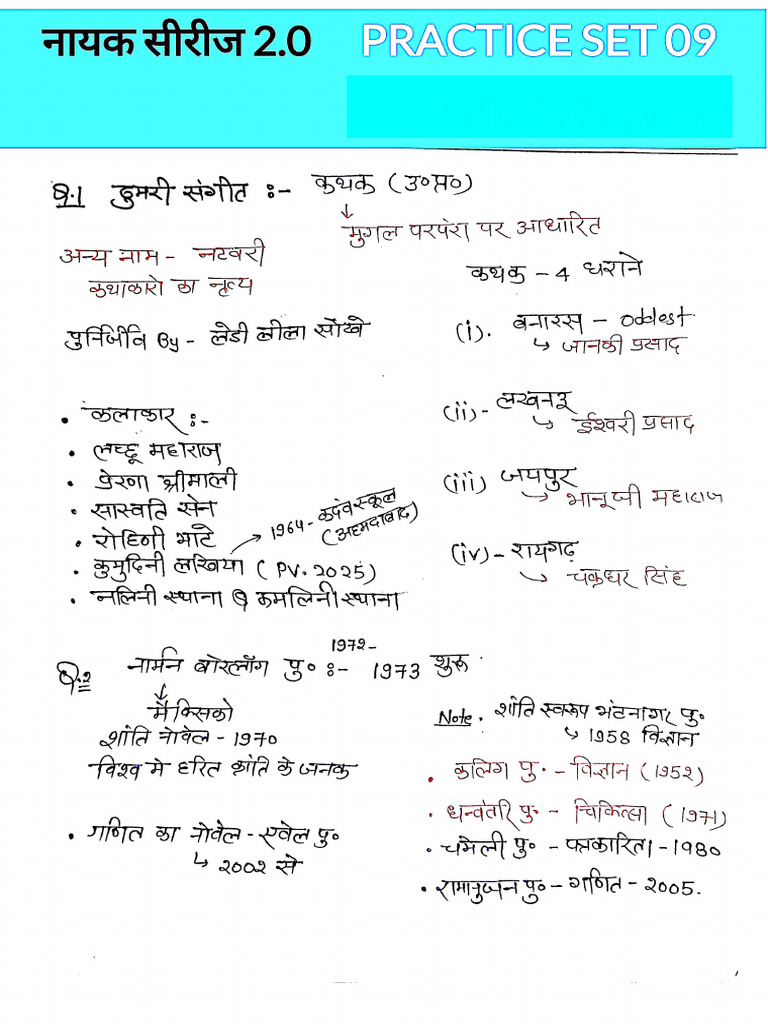 नायक सीरीज 2.0 PRACTICE SET 09
Q.1 ठुमरी संगीत :- कथक (उ०प्र०)
मुगल परपंरा पर आधारित
अन्य नाम - नटवरी
कथाकारो का नृत्य
कथक - 4 घराने
पुर्निर्जीव By - लेडी लीला सोंखे
(i). बनारस - oddest
जानकी प्रसाद
(ii) - लखनऊ
ईश्वरी प्रसाद
(iii) जयपुर
भानूजी महाराज
(iv) - रायगढ़
चक्रधर सिंह
• कलाकार :-
• लच्छू महाराज
• प्रेरणा श्रीमाली
• सास्वति सेन
• रोहिणी भाटे
• कुमुदिनी लखिया (PV. 2025)
1964 - कदंब स्कूल
(अहमदाबाद)
• नलिनी स्थाना & कमलिनी स्थाना
1972 -
Q.2 नार्मन बोरलॉग पु० :- 1973 शुरू
मैक्सिको
शांति नोबेल - 1970
विश्व मे हरित क्रांति के जनक
• गणित का नोबेल - एबेल पु०
2002 से
Note. शांति स्वरूप भटनागर पु०
1958 विज्ञान
• कलिंग पु० - विज्ञान (1952)
• धन्वंतरि पु० - चिकित्सा (1971)
• चमेली पु० - पत्रकारिता - 1980
• रामानुजन पु० - गणित - 2005.